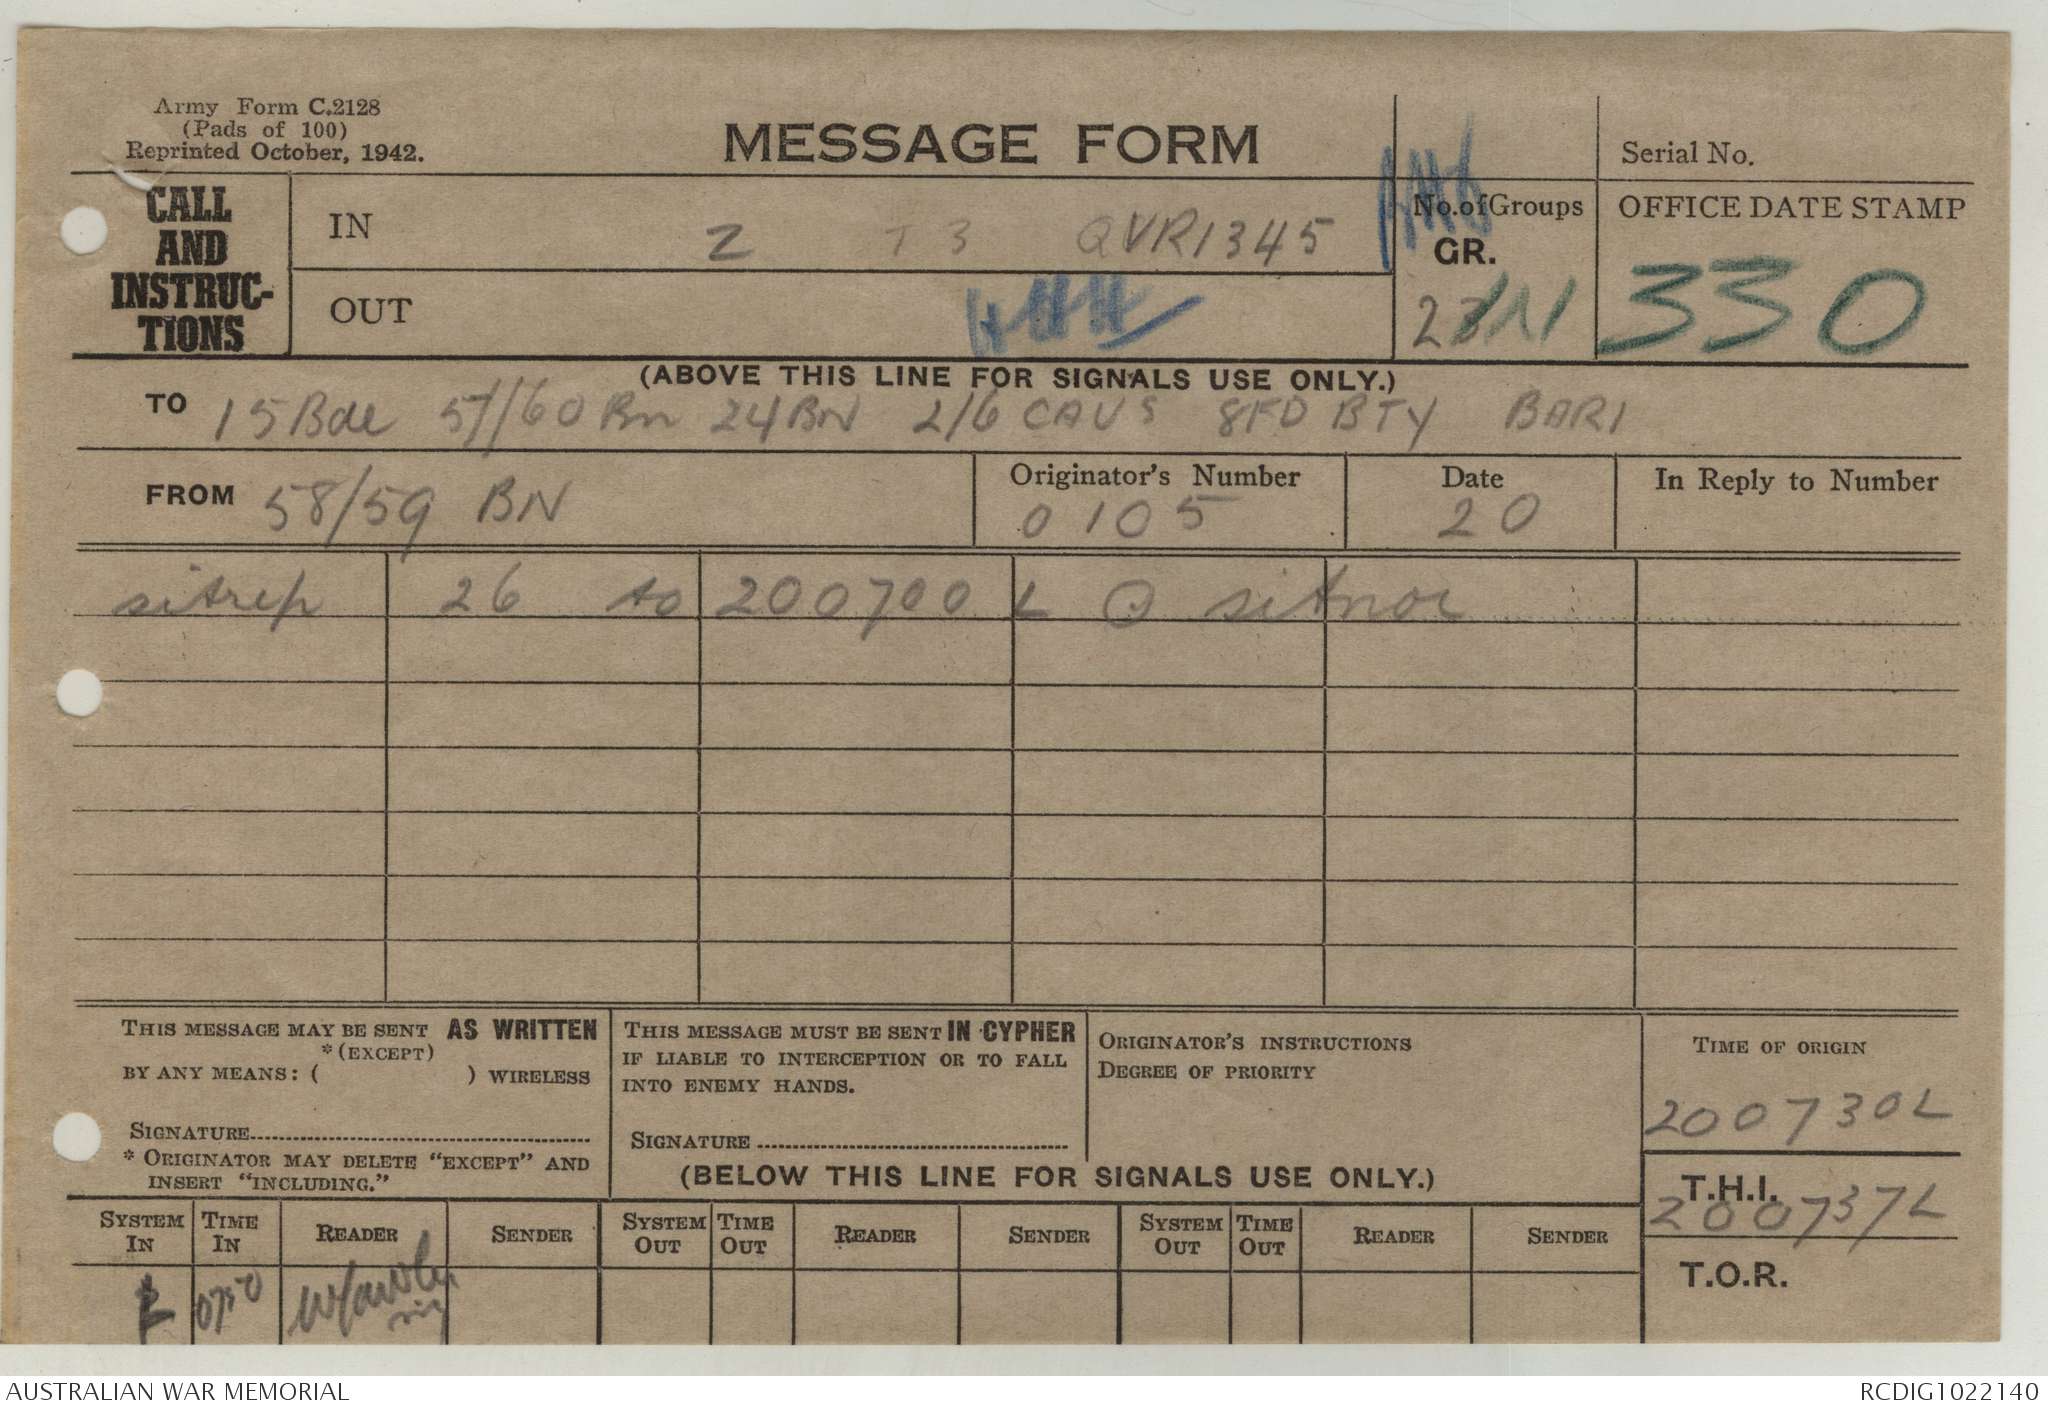 Army Form C.2128
(Pads of 100)
Reprinted October, 1942.
MESSAGE FORM
Serial No.
CALL
AND
INSTRUC-
TIONS
IN
Z T 3 QVR1345
OUT
No. of Groups
GR.
OFFICE DATE STAMP
330
(ABOVE THIS LINE FOR SIGNALS USE ONLY.)
TO 15 Bde 57/60 Bn 24 BN 2/6 CAVS 8 FD BTY BARI
FROM 58/59 BN
Originator's Number
0105
Date
20
In Reply to Number
sitrep 26 to 200700 L O sitnoc
THIS MESSAGE MAY BE SENT AS WRITTEN
*(EXCEPT)
BY ANY MEANS: ( ) WIRELESS
SIGNATURE
* ORIGINATOR MAY DELETE "EXCEPT" AND
INSERT "INCLUDING."
THIS MESSAGE MUST BE SENT IN CYPHER
IF LIABLE TO INTERCEPTION OR TO FALL
INTO ENEMY HANDS.
SIGNATURE
ORIGINATOR'S INSTRUCTIONS
DEGREE OF PRIORITY
TIME OF ORIGIN
200730L
(BELOW THIS LINE FOR SIGNALS USE ONLY.)
T.H.I.
200737L
T.O.R.
SYSTEM IN TIME IN READER SENDER SYSTEM OUT TIME OUT READER SENDER SYSTEM OUT TIME OUT READER SENDER
0750
AUSTRALIAN WAR MEMORIAL
RCDIG1022140